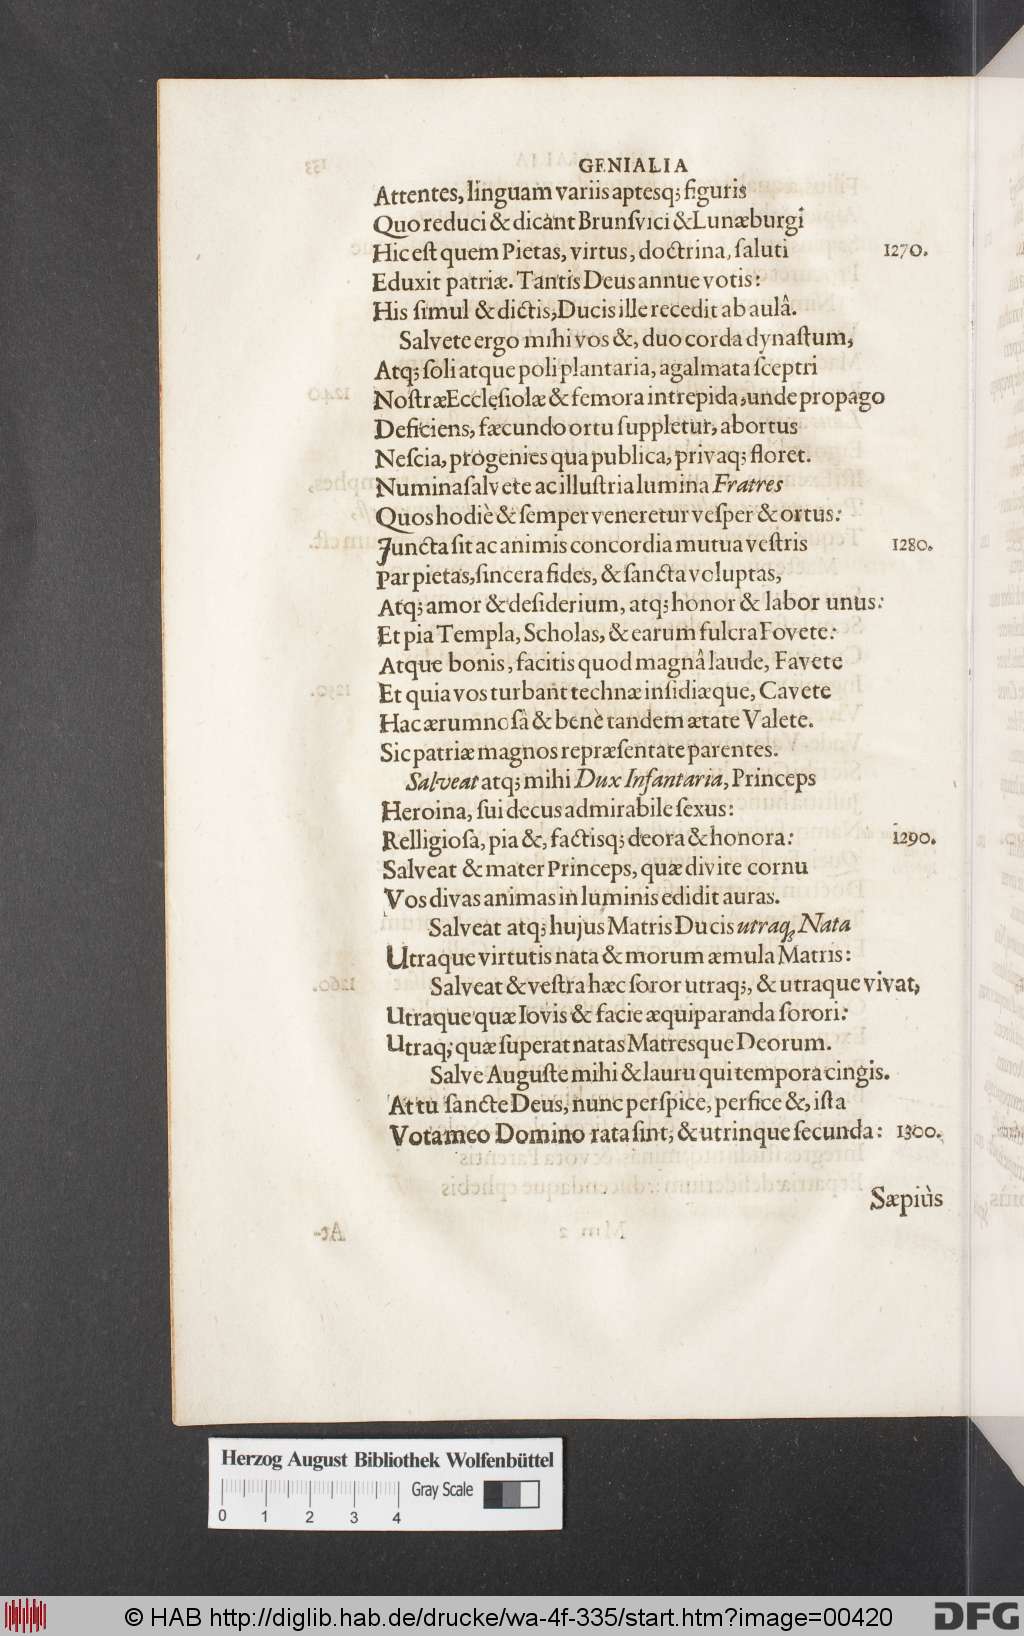 GENIALIA
Attentes, linguam variis aptesq; figuris
Quo reduci & dicànt Brunſvici & Lunæburgi
Hic eſt quem Pietas, virtus, doctrina, ſaluti 1270.
Eduxit patriæ. Tantis Deus annue votis:
His ſimul & dictis, Ducis ille recedit ab aulâ.
Salvete ergo mihi vos &, duo corda dynaſtum,
Atq; ſoli atque poli plantaria, agalmata ſceptri
Noſtræ Eccleſiolæ & femora intrepida, unde propago
Deficiens, fæcundo ortu ſuppletur, abortus
Neſcia, progenies qua publica, privaq; floret.
Numina ſalvete ac illuſtria lumina Fratres
Quos hodiè & ſemper veneretur veſper & ortus:
Juncta ſit ac animis concordia mutua veſtris 1280.
Par pietas, ſincera fides, & ſancta voluptas,
Atq; amor & deſiderium, atq; honor & labor unus:
Et pia Templa, Scholas, & earum fulcra Fovete:
Atque bonis, facitis quod magnâ laude, Favete
Et quia vos turbant technæ inſidiæque, Cavete
Hac ærumnoſâ & benè tandem ætate Valete.
Sic patriæ magnos repræſentate parentes.
Salveat atq; mihi Dux Infantaria, Princeps
Heroina, ſui decus admirabile ſexus:
Relligioſa, pia &, factisq; deora & honora: 1290.
Salveat & mater Princeps, quæ divite cornu
Vos divas animas in luminis edidit auras.
Salveat atq; hujus Matris Ducis utraq; Nata
Utraque virtutis nata & morum æmula Matris:
Salveat & veſtra hæc ſoror utraq;, & utraque vivat,
Utraque quæ Iovis & facie æquiparanda ſorori:
Utraq; quæ ſuperat natas Matresque Deorum.
Salve Auguſte mihi & lauru qui tempora cingis.
At tu ſancte Deus, nunc perſpice, perfice &, iſta
Vota meo Domino rata ſint, & utrinque ſecunda: 1300.
Sæpiùs
Herzog August Bibliothek Wolfenbüttel
Gray Scale
0 1 2 3 4
© HAB http://diglib.hab.de/drucke/wa-4f-335/start.htm?image=00420
DFG